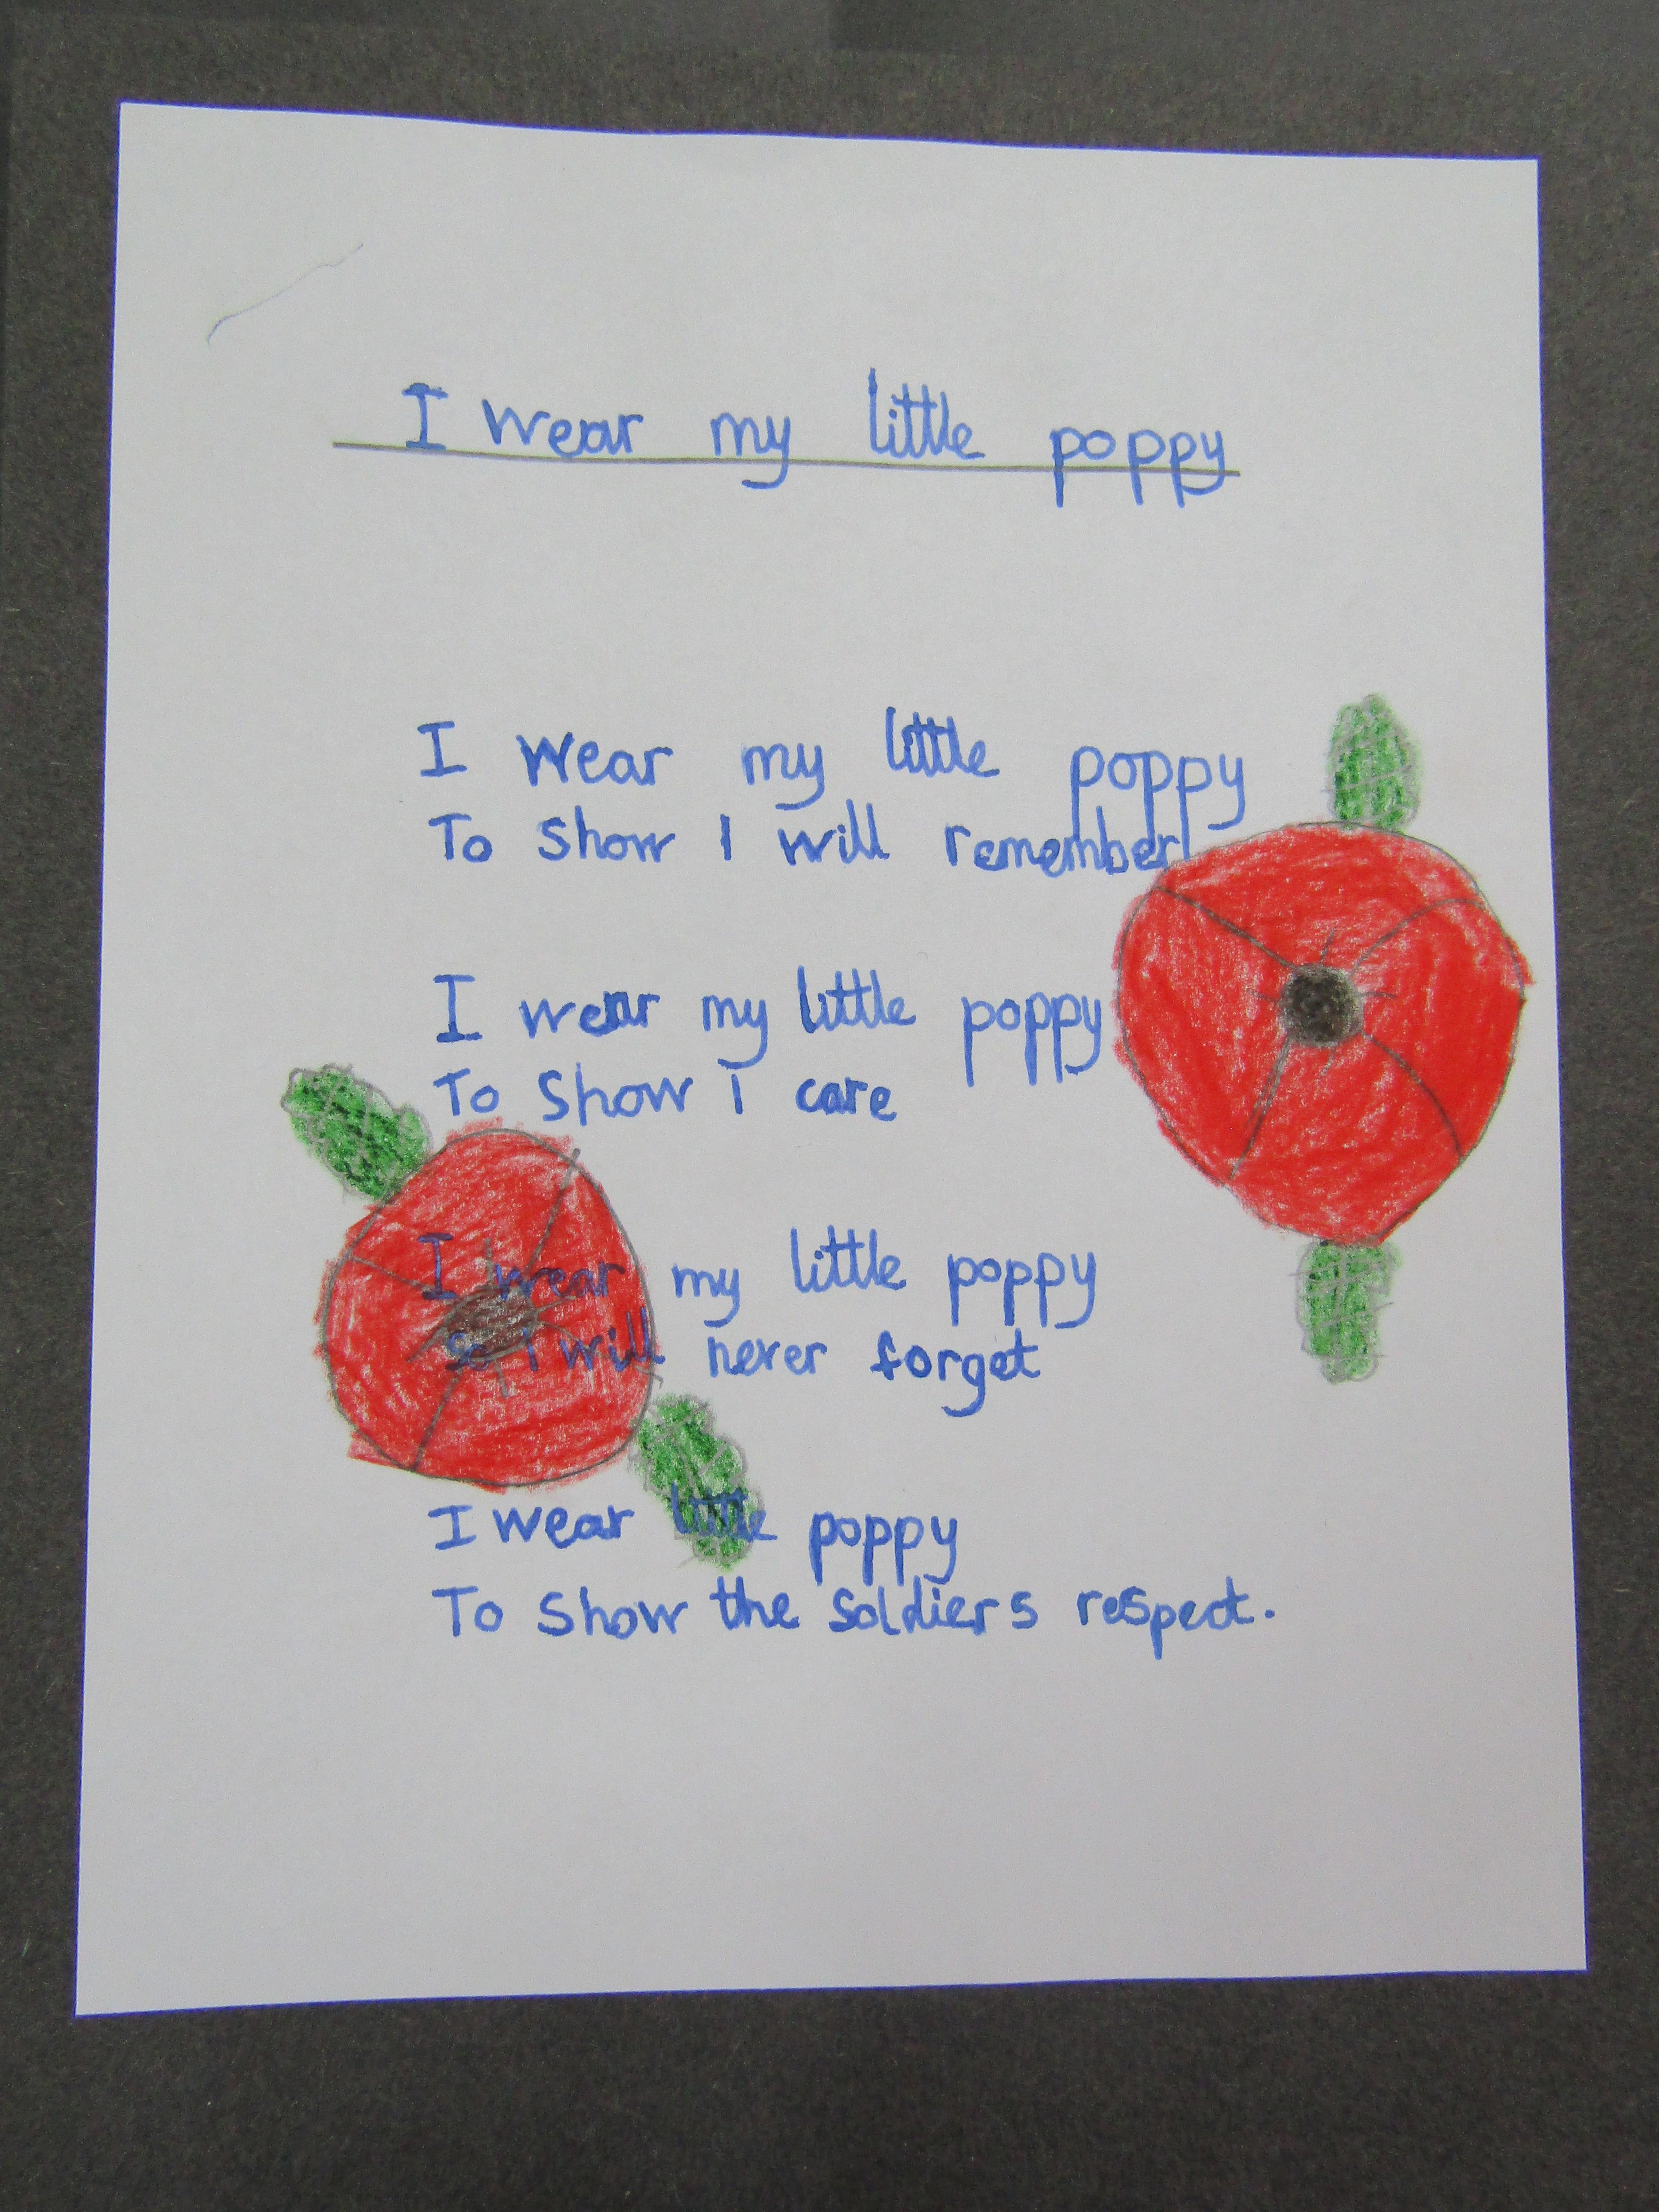 I wear my little poppy
I wear my little poppy
To show I will remember
I wear my little poppy
To show I care
I wear my little poppy
so I will never forget
I wear little poppy
To show the soldiers respect.